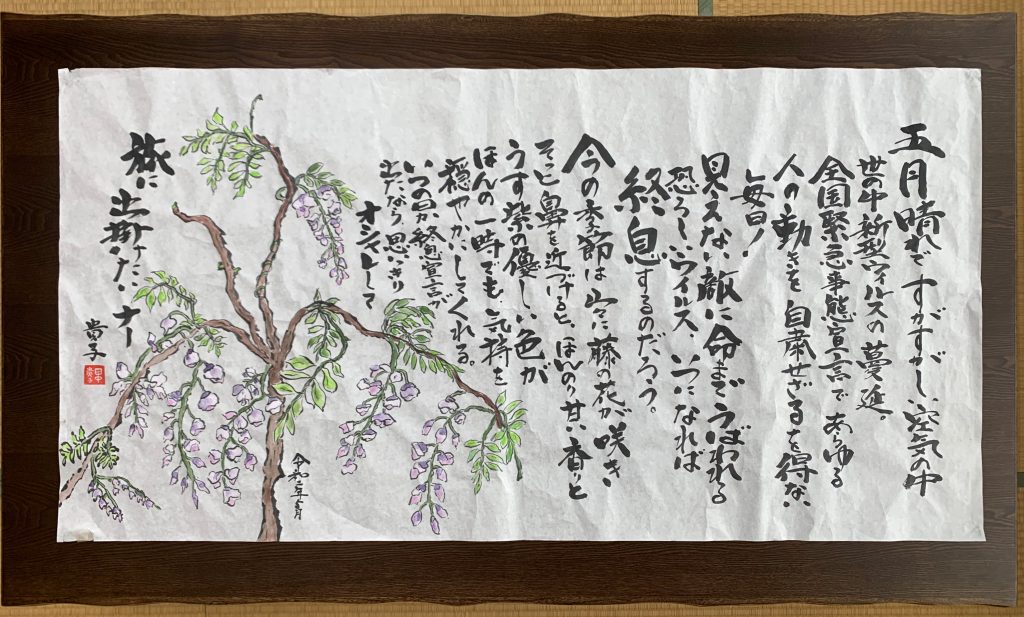 五月晴れで すがすがしい空気の中
世の中 新型ウィルスの蔓延。
全国緊急事態宣言で あらゆる
人の動きを 自粛せざるを得ない
毎日!
見えない敵に命までうばわれる
恐ろしいウィルス、いつになれば
終息するのだろう。
今の季節は山々に藤の花が咲き
そっと鼻を近づけると、ほんのり甘い香りと
うす紫の優しい色が
ほんの一時でも気持を
穏やかにしてくれる。
いつの日か終息宣言が
出たなら思いきり
オシャレして
旅に出掛けたいナー
貴子
令和二年五月